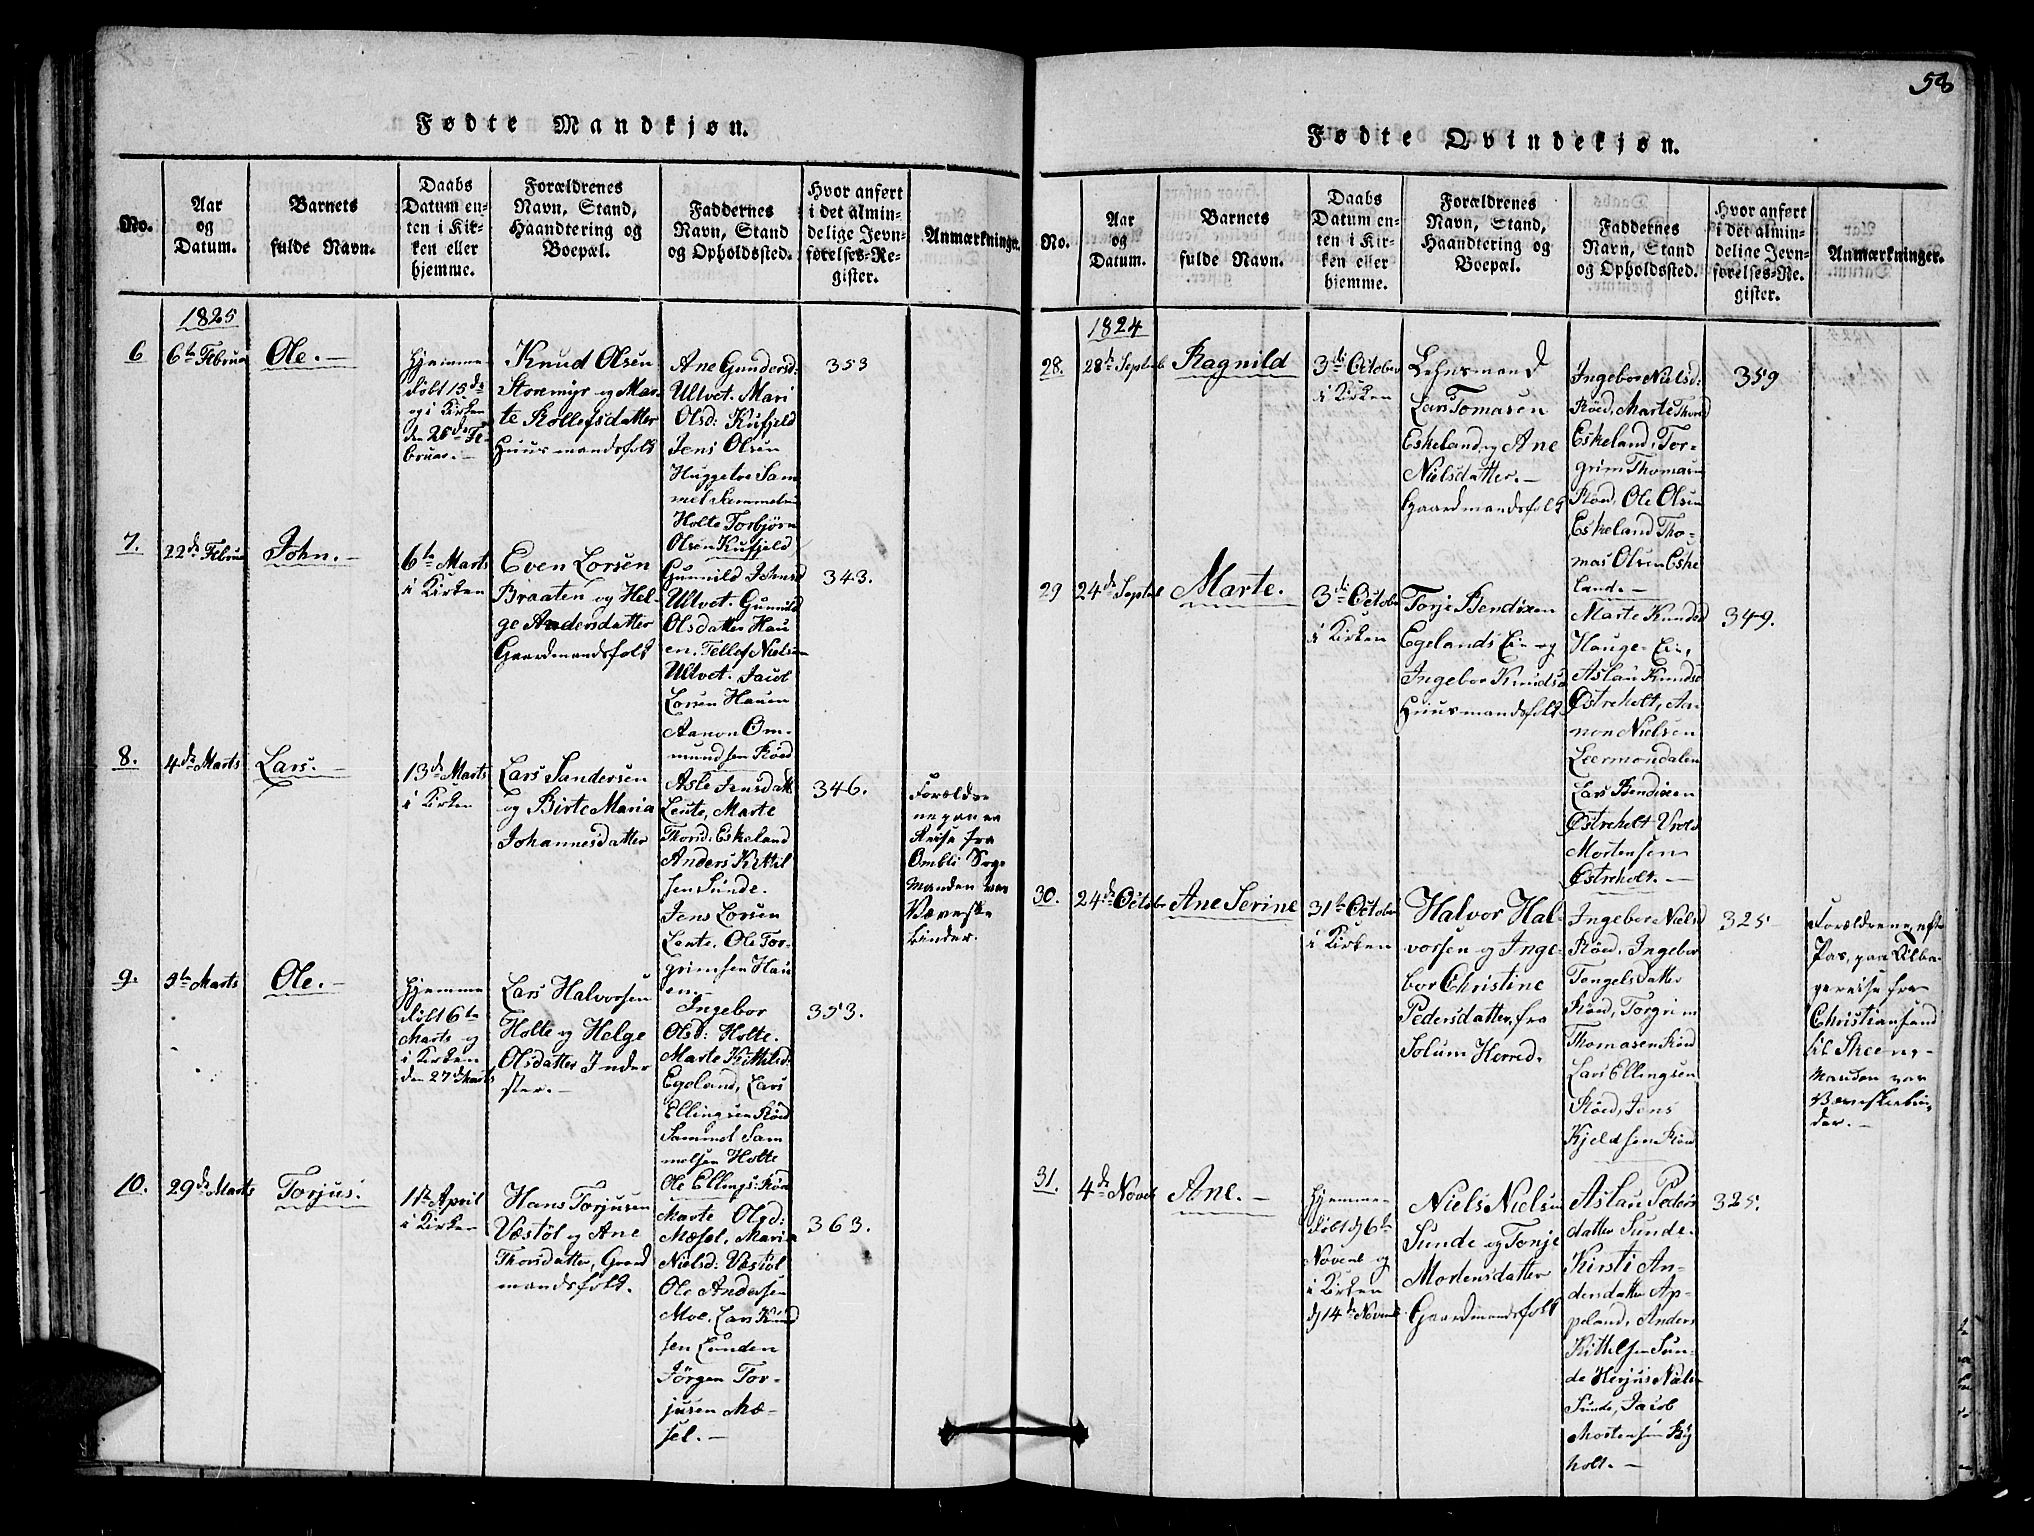 58
Fødte Mandkjøn.
No.
Aar
og
Datum.
Barnets
fulde Navn.
Daabs
Datum en-
ten i Kir-
ken eller
hjemme.
Forældrenes
Navn, Stand,
Haandtering og
Boepæl.
Faddernes
Navn, Stand
og Opholdssted.
Hvor anført
i det almin-
delige Jevn-
førelses-Re-
gister.
Anmærkninger.
1825
6
6te Februar
Ole. —
Hjemme
døbt 15de
og i Kirken
den 25de Fe-
bruar. —
Knud Olsen
Storemyr og Mar-
te Rollefsdatter
Huusmandsfolk
Ane Gundersd:
Ulvet. Mari
Olsd: Kufjeld
Jens Olsen
Huggeloe Sam
mel Sammelsen
Holte Torbjørn
Olsen Kufjeld
353
7.
22de Februar
John. —
6te Marts
i Kirken
Even Lorsen
Braaten og Hel-
ge Andersdatter
Gaardmandsfolk
Gunnild Johnsd
Ulvet. Gunnild
Olsdatter Hau
en. Tellef Nielsen
Ulvet. Jacob
Lorsen Hauen
Aanon Om-
mundsen Røed
343.
8.
4de Marts
Lars. —
13de Marts
i Kirken
Lars Sandersen
og Birte Maria
Johannesdatter
Asle Jensdatt
Lente, Marte
Thorsd: Eskeland
Anders Kittil
sen Sunde.
Jens Lorsen
Lente. Ole Tor-
grimsen Hau
en. —
346.
Forældre
ne paa en
Reise fra
Ombli Sogn
Manden var
Væveske
binder.
9.
5te Marts
Ole. —
Hjemme
døbt 6te
Marts og
i Kirken
den 27de Marts
Lars Halvorsen
Holte og Helge
Olsdatter Inder
ster. —
Ingebor
Olsd: Holte.
Marte Kittilsd:
Egeland, Lars
Ellingsen Røed
Sammel Sam
melsen Holte
Ole Ellings: Røed
353.
10.
29de Marts
Torjus.
1ste April
i Kirken
Hans Torjusen
Væstøl og Ane
Thorsdatter, Gaard
mandsfolk.
Marte Olsd:
Mæsel, Maria
Nielsd: Væstøl
Ole Andersen
Moe, Lars Knud
sen Lunden
Jørgen Tor-
jusen Mæ-
sel. —
363.
Fødte Qvindekjøn.
No.
Aar
og
Datum.
Barnets
fulde Navn.
Daabs
Datum en-
ten i Kir-
ken eller
hjemme.
Forældrenes
Navn, Stand,
Haandtering og
Boepæl.
Faddernes
Navn, Stand
og Opholdssted.
Hvor anført
i det almin-
delige Jevn-
førelses-Re-
gister.
Anmærkninger.
1824
28.
28de Septeb
Ragnild
3die October
i Kirken
Lehnsmand
Lars Tomasen
Eskeland og Ane
Nielsdatter. —
Gaardmandsfolk
Ingebor Nielsd:
Røed, Marte Thorsd
Eskeland, Tor-
grim Thomasen
Røed, Ole Olsen
Eskeland Tho-
mas Olsen Eske
land. —
359
29
24de Septeb
Marte.
3die October
i Kirken
Torje Bendixen
Egelands Eie og
Ingebor Knudsd
Huusmandsfolk
Marte Knudsd
Hauge-Eie,
Aslau Knudsd
Østreholt, An-
non Nielsen
Leermondalen
Lars Bendixen
Østreholt Vrold
Mortensen
Østreholt. —
349.
30.
24de Octobr
Ane Serine
31te October
i Kirken
Halvor Hal-
vorsen og Inge-
bor Christine
Pedersdatter, fra
Solum Herred.
Ingebor Nielsd
Røed, Ingebor
Tengelsdatter
Røed, Torgrim
Thomasen Røed
Lars Ellingsen
Røed, Jens
Kjeldsen Røed
325
Forældrene, efter
Pas, paa Tilba-
gereise fra
Christiansand
til Skeen, —
Manden var
Væveskebin-
der. —
31.
4de Noveb
Ane. —
Hjemme
døbt d 6te
Novemb og
i Kirken
d 14de Novemb
Niels Nielsen
Sunde og Tonje
Mortensdatter
Gaardmandsfolk
Aslau Peders
datter Sunde.
Kirsti An-
dersdatter Ap-
peland, Anders
Kittelsen Sun-
de Herjus Nielsen
Sunde, Jacob
Mortensen Ry
holt. —
325.